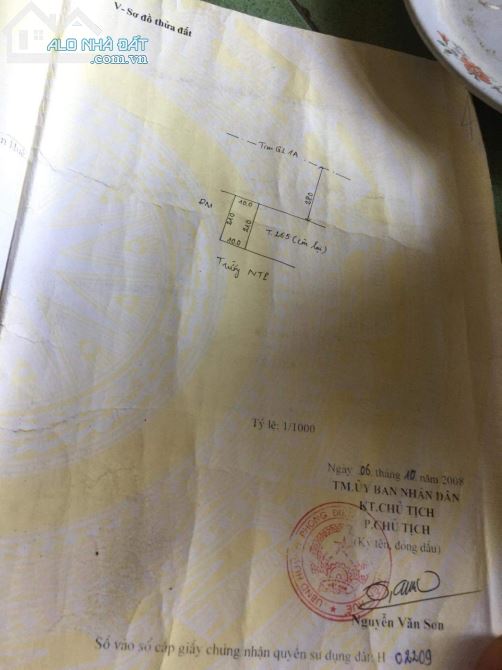 ALO NHÀ ĐẤT
.com.vn
V- Sơ đồ thửa đất
Tim QL 1A
28.0
ĐM
10.0
21.0
21.0
10.0
T.265 (còn lại)
Trường NTL
Tỷ lệ: 1/1000
Ngày 06 tháng 10 năm 2008
TM.ỦY BAN NHÂN DÂN
KT.CHỦ TỊCH
P.CHỦ TỊCH
(Ký tên, đóng dấu)
Nguyễn Văn Sơn
Số vào sổ cấp giấy chứng nhận quyền sử dụng đất: H 02209